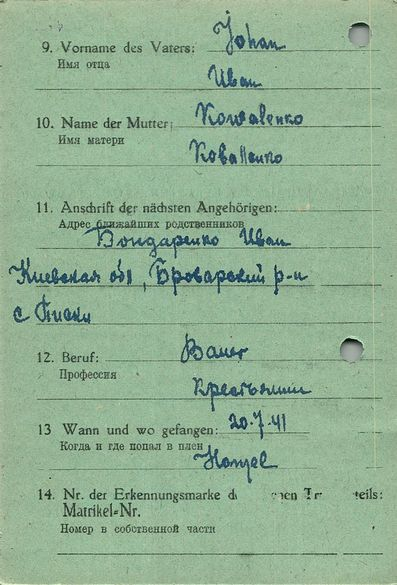 9. Vorname des Vaters: Johan
Имя отца
Иван
10. Name der Mutter: Kowalenko
Имя матери
Коваленко
11. Anschrift der nächsten Angehörigen:
Адрес ближайших родственников
Бондаренко Иван
Киевская обл, Броварский р-н
с
12. Beruf: Bauer
Профессия
крестьянин
13 Wann und wo gefangen: 20.7.41
Когда и где попал в плен
14. Nr. der Erkennungsmarke
Matrikel=Nr.
Номер в собственной части